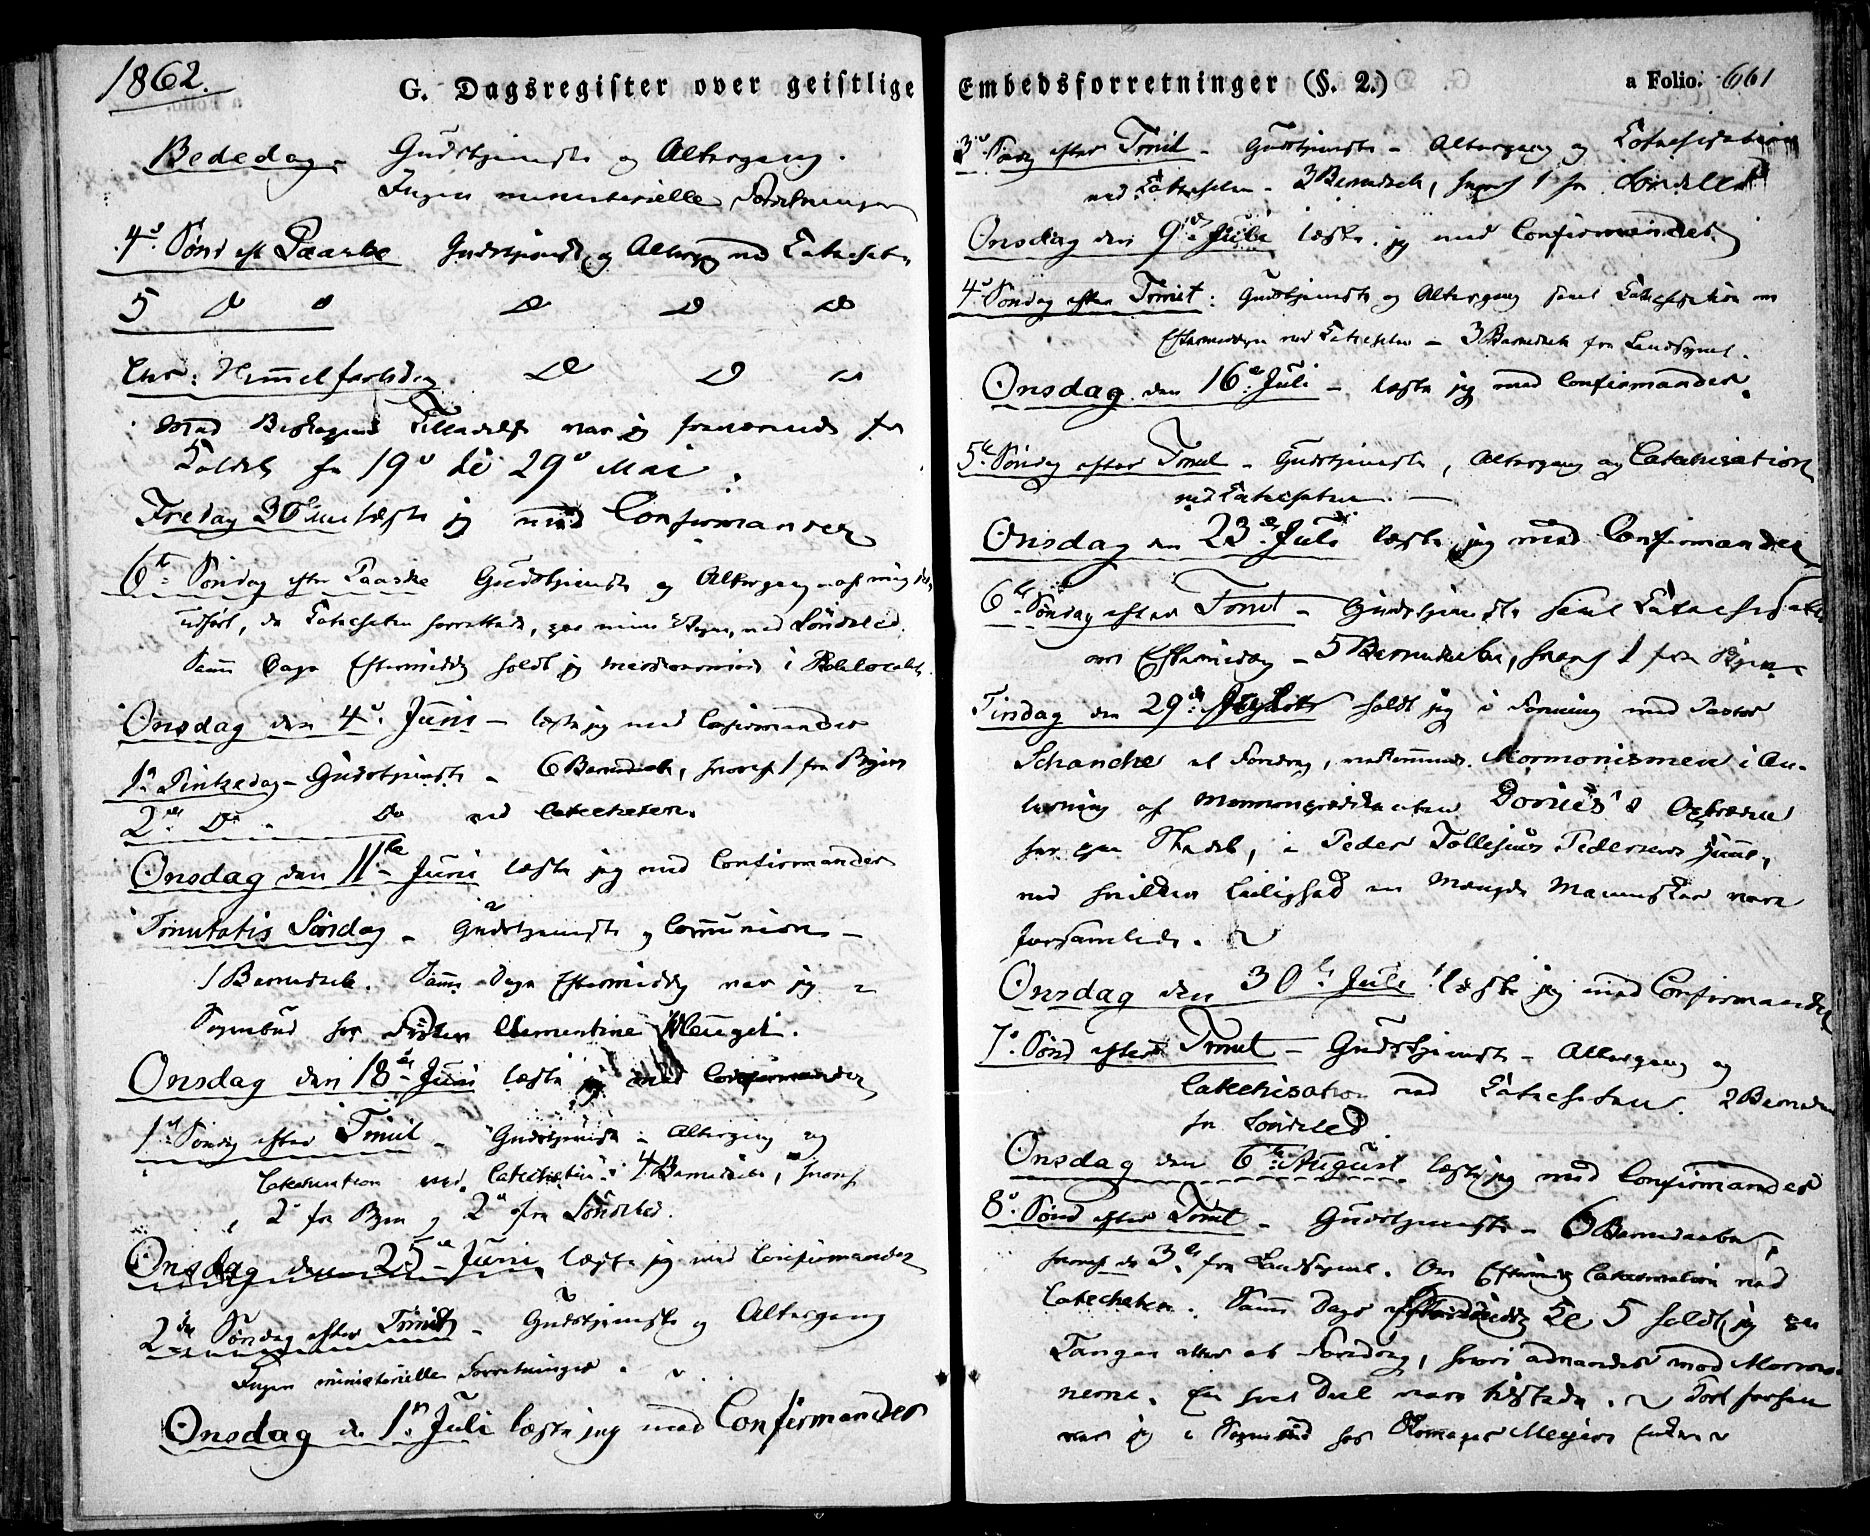 1862.
G. Dagsregister over geistlige
Bededag - Gudstjeneste og Altergang.
Ingen ministerielle Forretninger
4de Sønd eft Paaske Gudstjeneste og Alterg ved Catecheten
5 Do Do Do Do Do
Chr: Himmelfartsdag Do Do
Med Tilladelse var jeg fraværende fra
Kaldet fra 19de til 29de Mai.
Fredag 30te læste jeg med Confirmander
6te Søndag efter Paaske Gudstjeneste og Altergang - af mig
udført, da Catecheten forrettede, paa mine Vegne, ved Søndeled.
Samme Dags Eftermiddag holdt jeg i
Onsdag den 4de Juni - læste jeg med Confirmander
1ste Pintsedag - Gudstjeneste - 6 Barnedaab, hvoraf 1 fra Byen
2den Do Do ved Catecheten.
Onsdag den 11te Juni læste jeg med Confirmander
Trinitatis Søndag - Gudstjeneste og Communion -
1 Barnedaab. Samme Dags Eftermiddag var jeg i
Sognebud hos Clementine
Onsdag den 18de Juni læste jeg med Confirmander
1ste Søndag efter Trinit - Gudstjeneste - Altergang og
Catechisation ved Catecheten. 4 Barnedaab, hvoraf
2 fra Byen og 2 fra Søndeled.
Onsdag den 25de Juni læste jeg med Confirmander
2den Søndag efter Trinit - Gudstjeneste og Altergang
Ingen ministerielle Forretninger.
Onsdag de 1ste Juli læste jeg med Confirmander
Embedsforretninger (§. 2.) a Folio. 661
3die Sønd efter Trinit - Gudstjeneste - Altergang og Catechisation
ved Catecheten - 3 Barnedaab, hvoraf 1 fra Søndeled
Onsdag den 9de Juli læste jeg med Confirmander
4de Søndag efter Trinit: Gudstjeneste og Altergang samt Catechisation om
Eftermiddagen ved Catecheten - 3 Barnedaab fra Landsognet.
Onsdag den 16de Juli - læste jeg med Confirmander.
5te Søndag efter Trinit - Gudstjeneste, Altergang og Catechisation
ved Catecheten. -
Onsdag den 23de Juli læste jeg med Confirmander
6te Søndag efter Trinit - Gudstjeneste samt Catechisation
om Eftermiddag - 5 Barnedaab, hvoraf 1 fra Byen
Tirsdag den 29de holdt jeg i Forening med Pastor
Schanche et Foredrag, vedkommende Mormonismen i An-
ledning af Mormonprædikanten Dorius's Optræden
her paa Stedet, i Peder Tollefsens Pedersens Huus,
ved hvilken Leilighed en Mængde Mennesker vare
forsamlede.
Onsdag den 30te Juli læste jeg med Confirmander
7de Sønd efter Trinit - Gudstjeneste - Altergang og
Catechisation ved Catecheten. 2 Barnedaab
fra Søndeled.
Onsdag den 6te August læste jeg med Confirmander
8de Sønd efter Trinit - Gudstjeneste - 6 Barnedaab,
hvoraf de 3de fra Landsognet. Om Eftermiddag Catechisation ved
Catecheten. Samme Dags Eftermiddag Kl 5 holdt jeg paa
Tangen atter et Foredrag, hvori advaredes mod Mormo-
nerne. En heel Deel vare tilstede.
var jeg i Sognebud hos Meyers